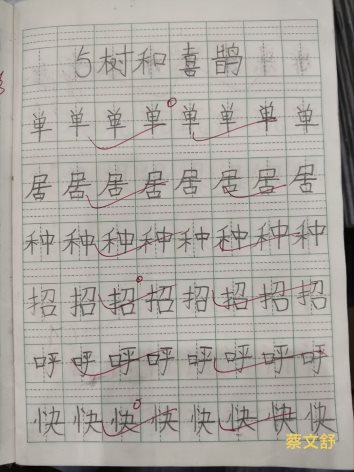 5树和喜鹊
单单单单单单单单
居居居居居居居居
种种种种种种种种
招招招招招招招招
呼呼呼呼呼呼呼呼
快快快快快快快快
蔡文舒